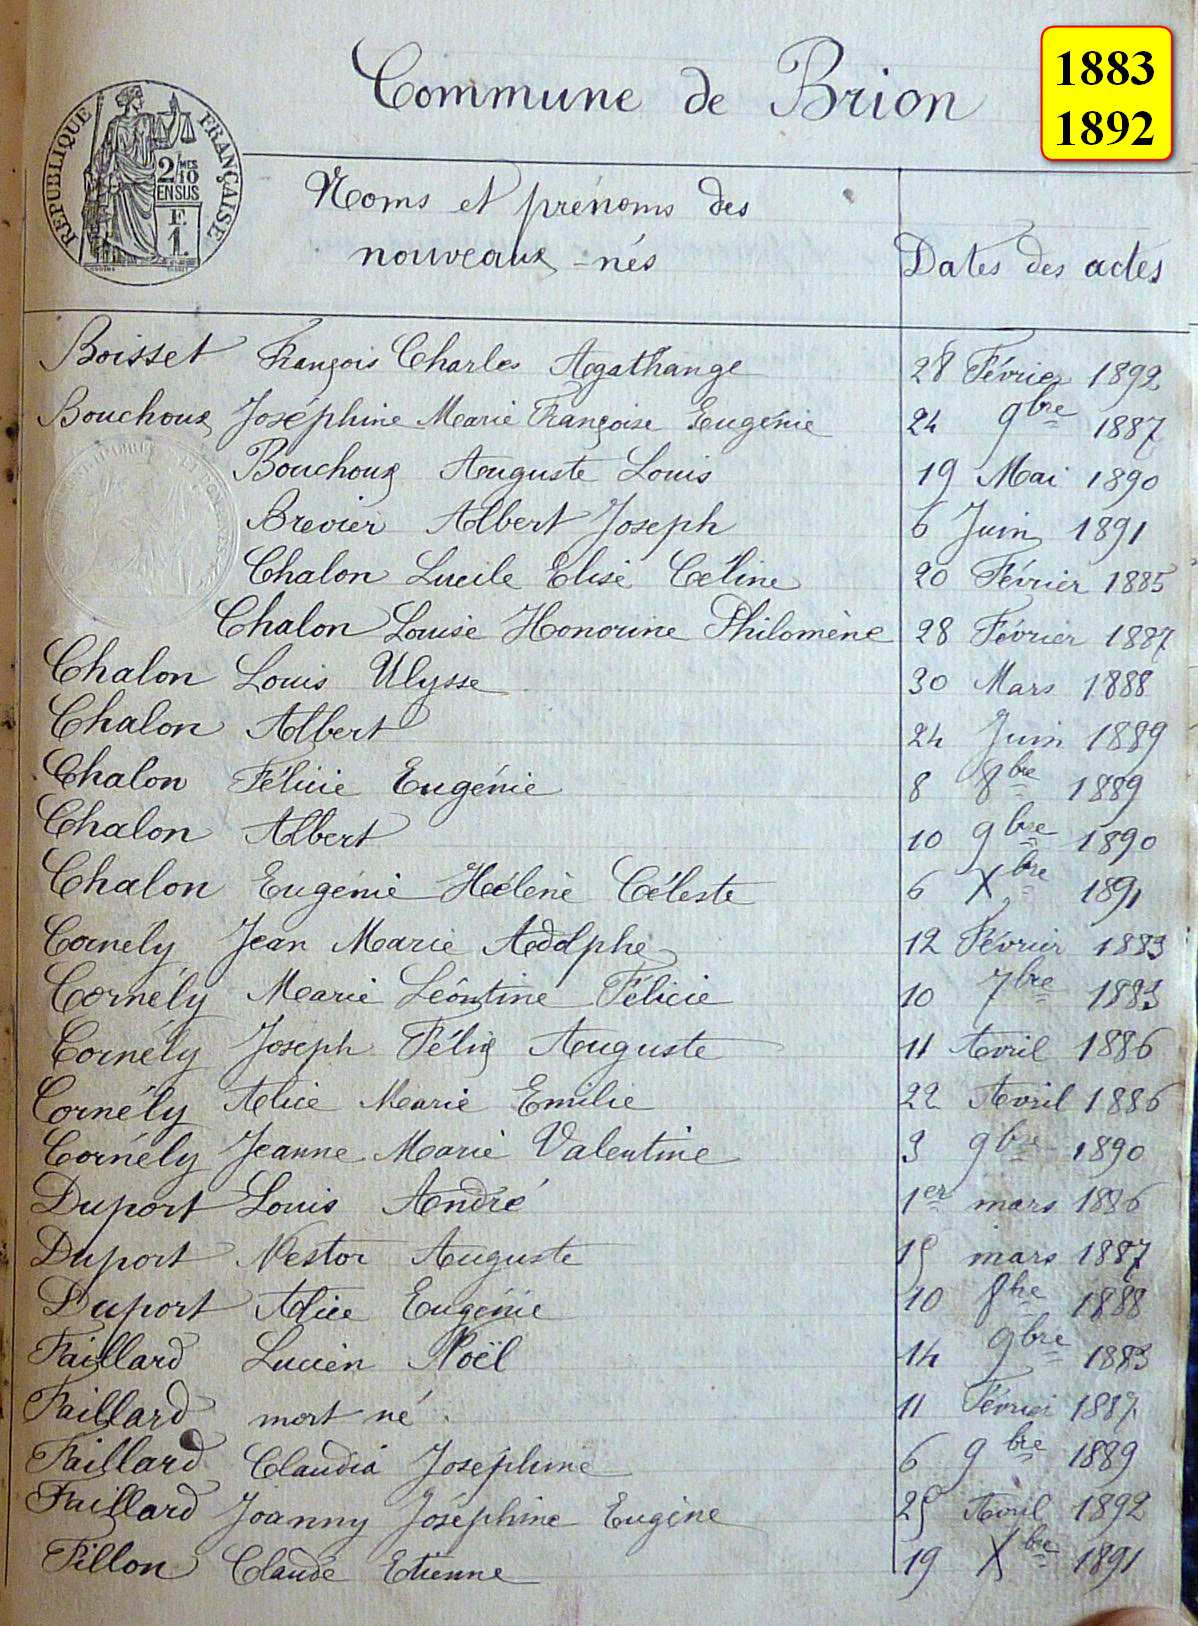 Commune de Brion
1883
1892
RÉPUBLIQUE FRANÇAISE
2/10 MES
EN SUS
F.
1.
Noms et prénoms des
nouveaux-nés
Dates des actes
Boisset François Charles Agathange 28 Février 1892
Bouchoux Joséphine Marie Françoise Eugénie 24 9bre 1887
Bouchoux Auguste Louis 19 Mai 1890
Brevier Albert Joseph 6 Juin 1891
Chalon Lucile Elise Céline 20 Février 1885
Chalon Louise Honorine Philomène 28 Février 1887
Chalon Louis Ulysse 30 Mars 1888
Chalon Albert 24 Juin 1889
Chalon Félicie Eugénie 8 8bre 1889
Chalon Albert 10 9bre 1890
Chalon Eugénie Hélène Céleste 6 Xbre 1891
Cornély Jean Marie Adolphe 12 Février 1883
Cornély Marie Léontine Félicie 10 7bre 1883
Cornély Joseph Félix Auguste 11 Avril 1886
Cornély Alice Marie Emilie 22 Avril 1886
Cornély Jeanne Marie Valentine 3 9bre 1890
Duport Louis André 1er mars 1886
Duport Nestor Auguste 15 mars 1887
Duport Alice Eugénie 10 8bre 1888
Faillard Lucien Noël 14 9bre 1883
Faillard mort né. 11 Février 1887
Faillard Claudia Joséphine 6 9bre 1889
Faillard Joanny Joséphine Eugène 25 Avril 1892
Fillon Claude Etienne 19 Xbre 1891